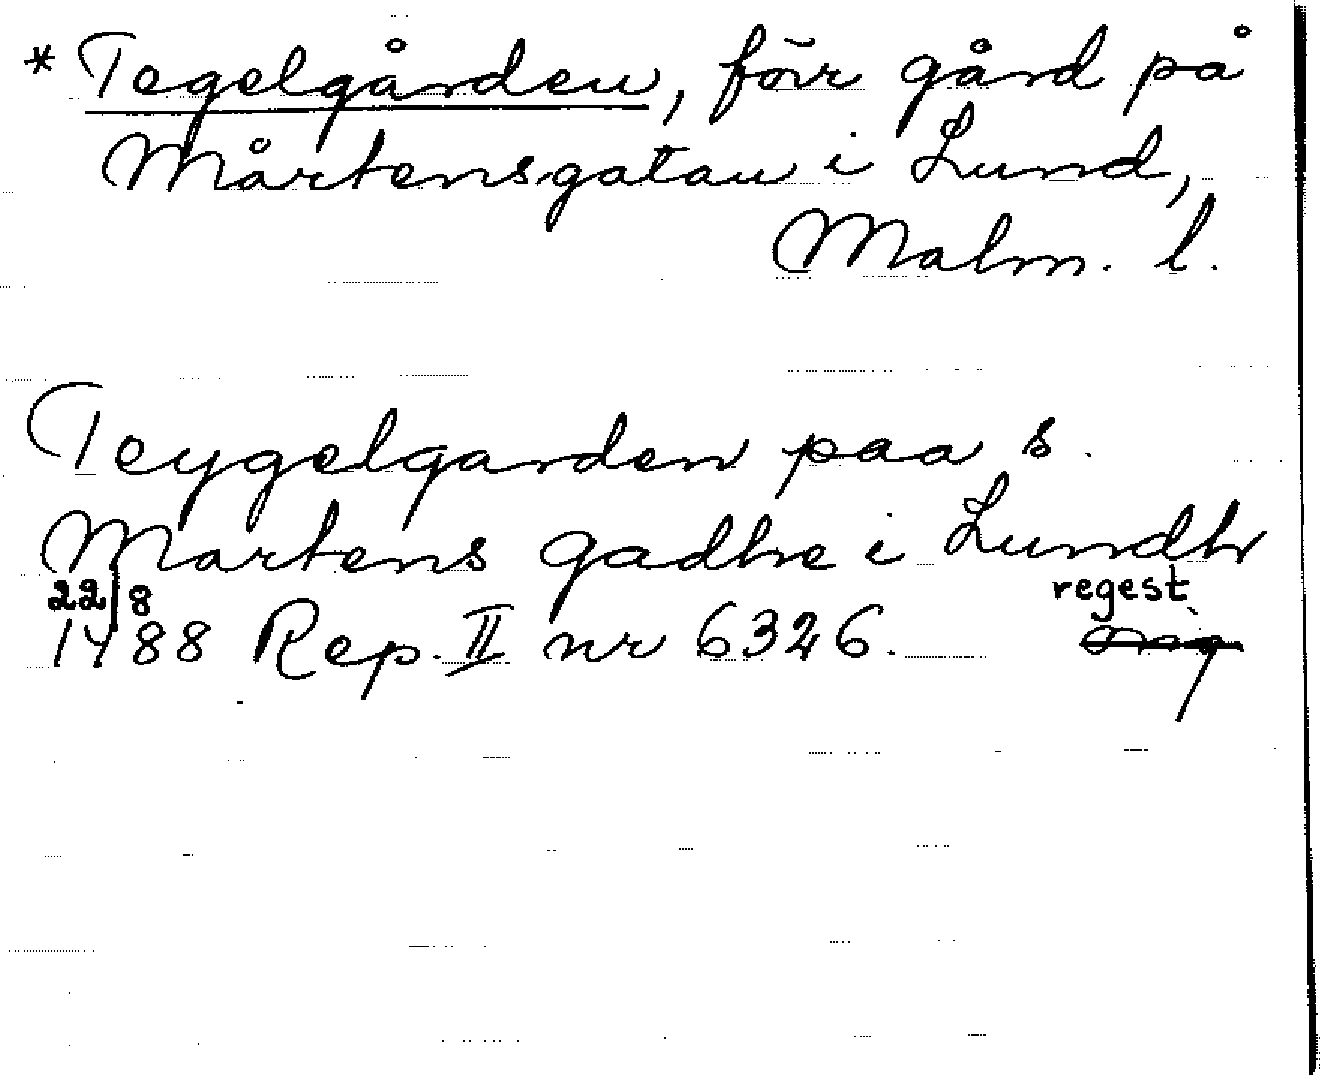 *Tegelgården, förr gård på
Mårtensgatan i Lund,
Malm. l.
Teygelgarden paa s.
Martens gadhe i Lundh
22/8 regest
1488 Rep. II nr 6326.